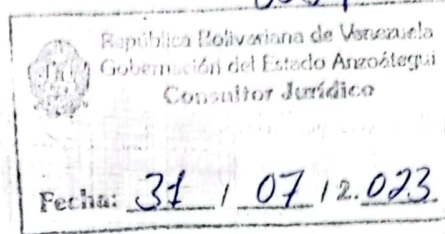 República Bolivariana de Venezuela
Gobernación del Estado Anzoátegui
Consultor Jurídico
Fecha: 31 / 07 / 2.023